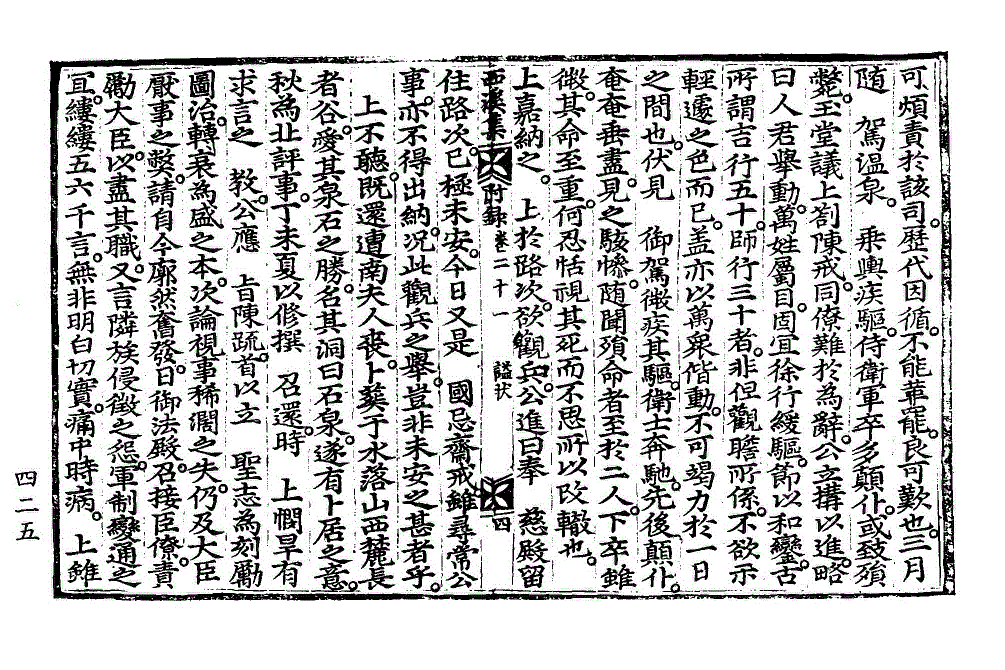 可煩責於該司。歷代因循。不能革罷。良可歎也。三月
隨　駕溫泉。　乘輿疾驅。侍衛軍卒多顚仆。或致殞
斃。玉堂議上箚陳戒。同僚難於為辭。公立搆以進。略
曰人君擧動。萬姓屬目。固宜徐行緩驅。節以和鑾。古
所謂吉行五十。師行三十者。非但觀瞻所係。不欲示
輕遽之色而已。盖亦以萬衆偕動。不可竭力於一日
之間也。伏見　御駕微疾其驅。衛士奔馳。先後顚仆。
奄奄垂盡。見之駭慘。隨聞殞命者至於二人。下卒雖
微。其命至重。何忍恬視其死而不思所以改轍也。
上嘉納之。　上於路次。欲觀兵。公進曰奉　慈殿留
西溪集　附錄　卷二十一　諡狀　四
住路次。已極未安。今日又是　國忌齋戒。雖尋常公
事。亦不得出納。况此觀兵之擧。豈非未安之甚者乎。
上不聽。旣還遭南夫人喪。卜葬于水落山西麓長
者谷。愛其泉石之勝。名其洞曰石泉。遂有卜居之意。
秋為北評事。丁未夏以修撰　召還。時　上憫旱有
求言之　敎。公應　旨陳疏。首以立　聖志為刻勵
圖治。轉衰為盛之本。次論視事稀濶之失。仍及大臣
厭事之弊。請自今廓然奮發。日御法殿。召接臣僚。責
勵大臣。以盡其職。又言隣族侵徵之怨。軍制變通之
宜。縷縷五六千言。無非明白切實。痛中時病。　上雖
四二五